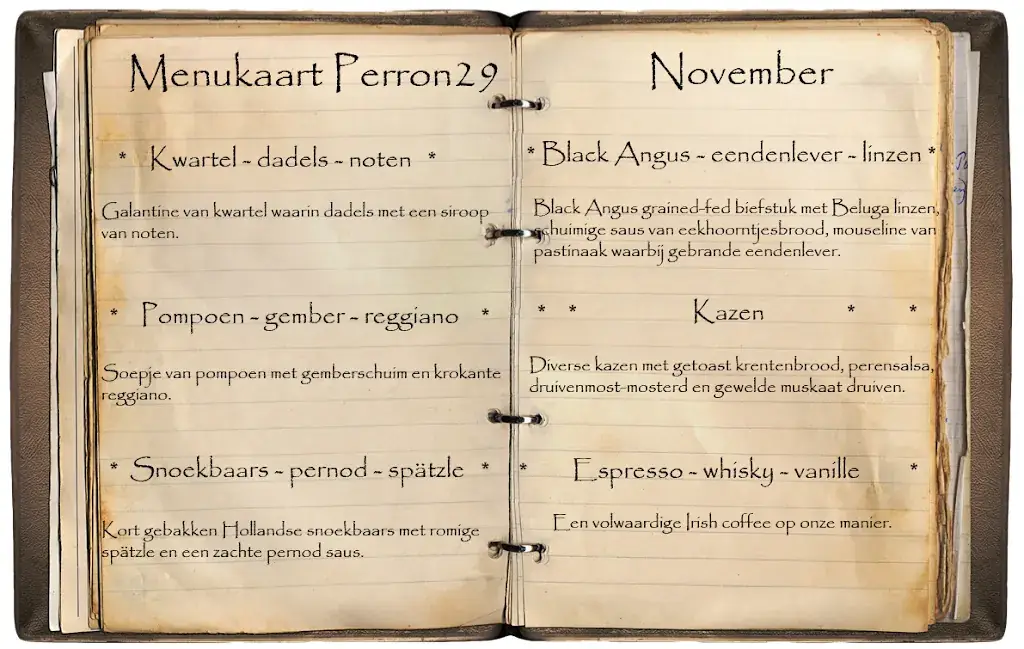 Menukaart Perron29
* Kwartel - dadels - noten *
Galantine van kwartel waarin dadels met een siroop
van noten.
* Pompoen - gember - reggiano *
Soepje van pompoen met gemberschuim en krokante
reggiano.
* Snoekbaars - pernod - spätzle *
Kort gebakken Hollandse snoekbaars met romige
spätzle en een zachte pernod saus.
November
* Black Angus - eendenlever - linzen *
Black Angus grained-fed biefstuk met Beluga linzen,
schuimige saus van eekhoorntjesbrood, mouseline van
pastinaak waarbij gebrande eendenlever.
* * Kazen * *
Diverse kazen met getoast krentenbrood, perensalsa,
druivenmost-mosterd en gewelde muskaat druiven.
* Espresso - whisky - vanille *
Een volwaardige Irish coffee op onze manier.